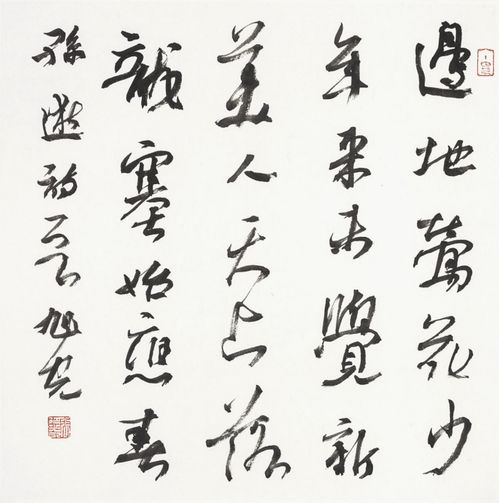 邊地鶯花少
年來未覺新
美人天上落
龍塞始應春
孫逖詩一首旭光